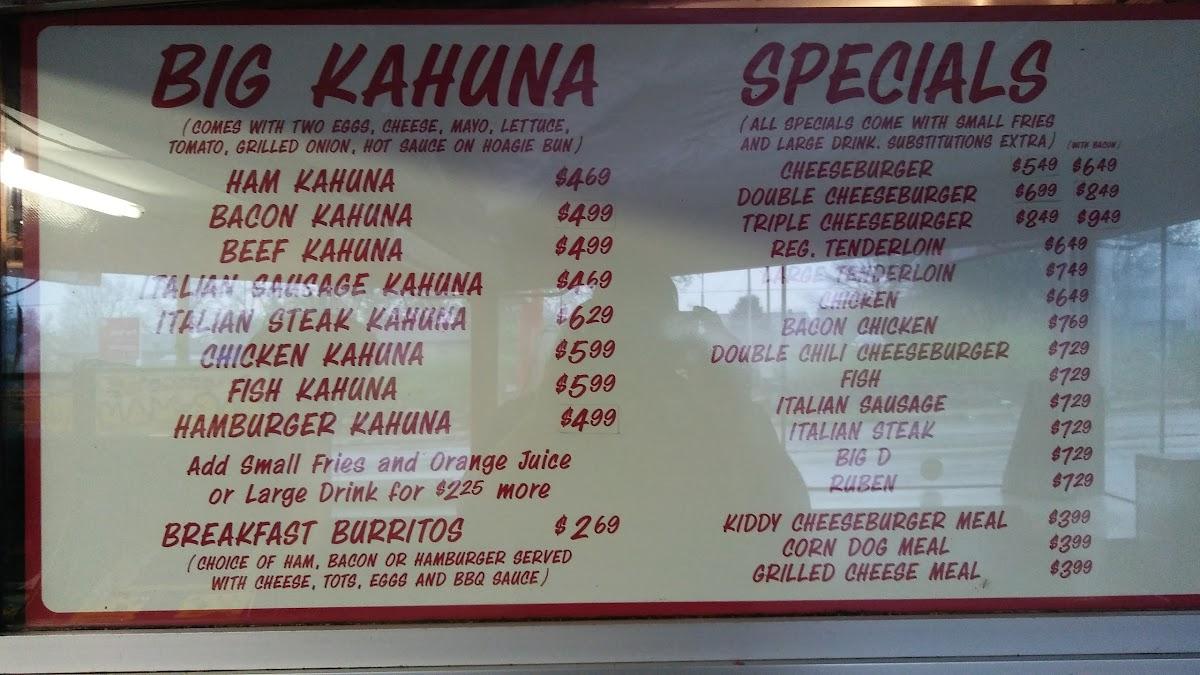 BIG KAHUNA
(COMES WITH TWO EGGS, CHEESE, MAYO, LETTUCE,
TOMATO, GRILLED ONION, HOT SAUCE ON HOAGIE BUN)
HAM KAHUNA $4.69
BACON KAHUNA $4.99
BEEF KAHUNA $4.99
ITALIAN SAUSAGE KAHUNA $4.69
ITALIAN STEAK KAHUNA $6.29
CHICKEN KAHUNA $5.99
FISH KAHUNA $5.99
HAMBURGER KAHUNA $4.99
Add Small Fries and Orange Juice
or Large Drink for $2.25 more
BREAKFAST BURRITOS $2.69
(CHOICE OF HAM, BACON OR HAMBURGER SERVED
WITH CHEESE, TOTS, EGGS AND BBQ SAUCE)
SPECIALS
(ALL SPECIALS COME WITH SMALL FRIES
AND LARGE DRINK. SUBSTITUTIONS EXTRA) (WITH BACON)
CHEESEBURGER $5.49 $6.49
DOUBLE CHEESEBURGER $6.99 $8.49
TRIPLE CHEESEBURGER $8.49 $9.49
REG. TENDERLOIN $6.49
LARGE TENDERLOIN $7.49
CHICKEN $6.49
BACON CHICKEN $7.69
DOUBLE CHILI CHEESEBURGER $7.29
FISH $7.29
ITALIAN SAUSAGE $7.29
ITALIAN STEAK $7.29
BIG D $7.29
RUBEN $7.29
KIDDY CHEESEBURGER MEAL $3.99
CORN DOG MEAL $3.99
GRILLED CHEESE MEAL $3.99